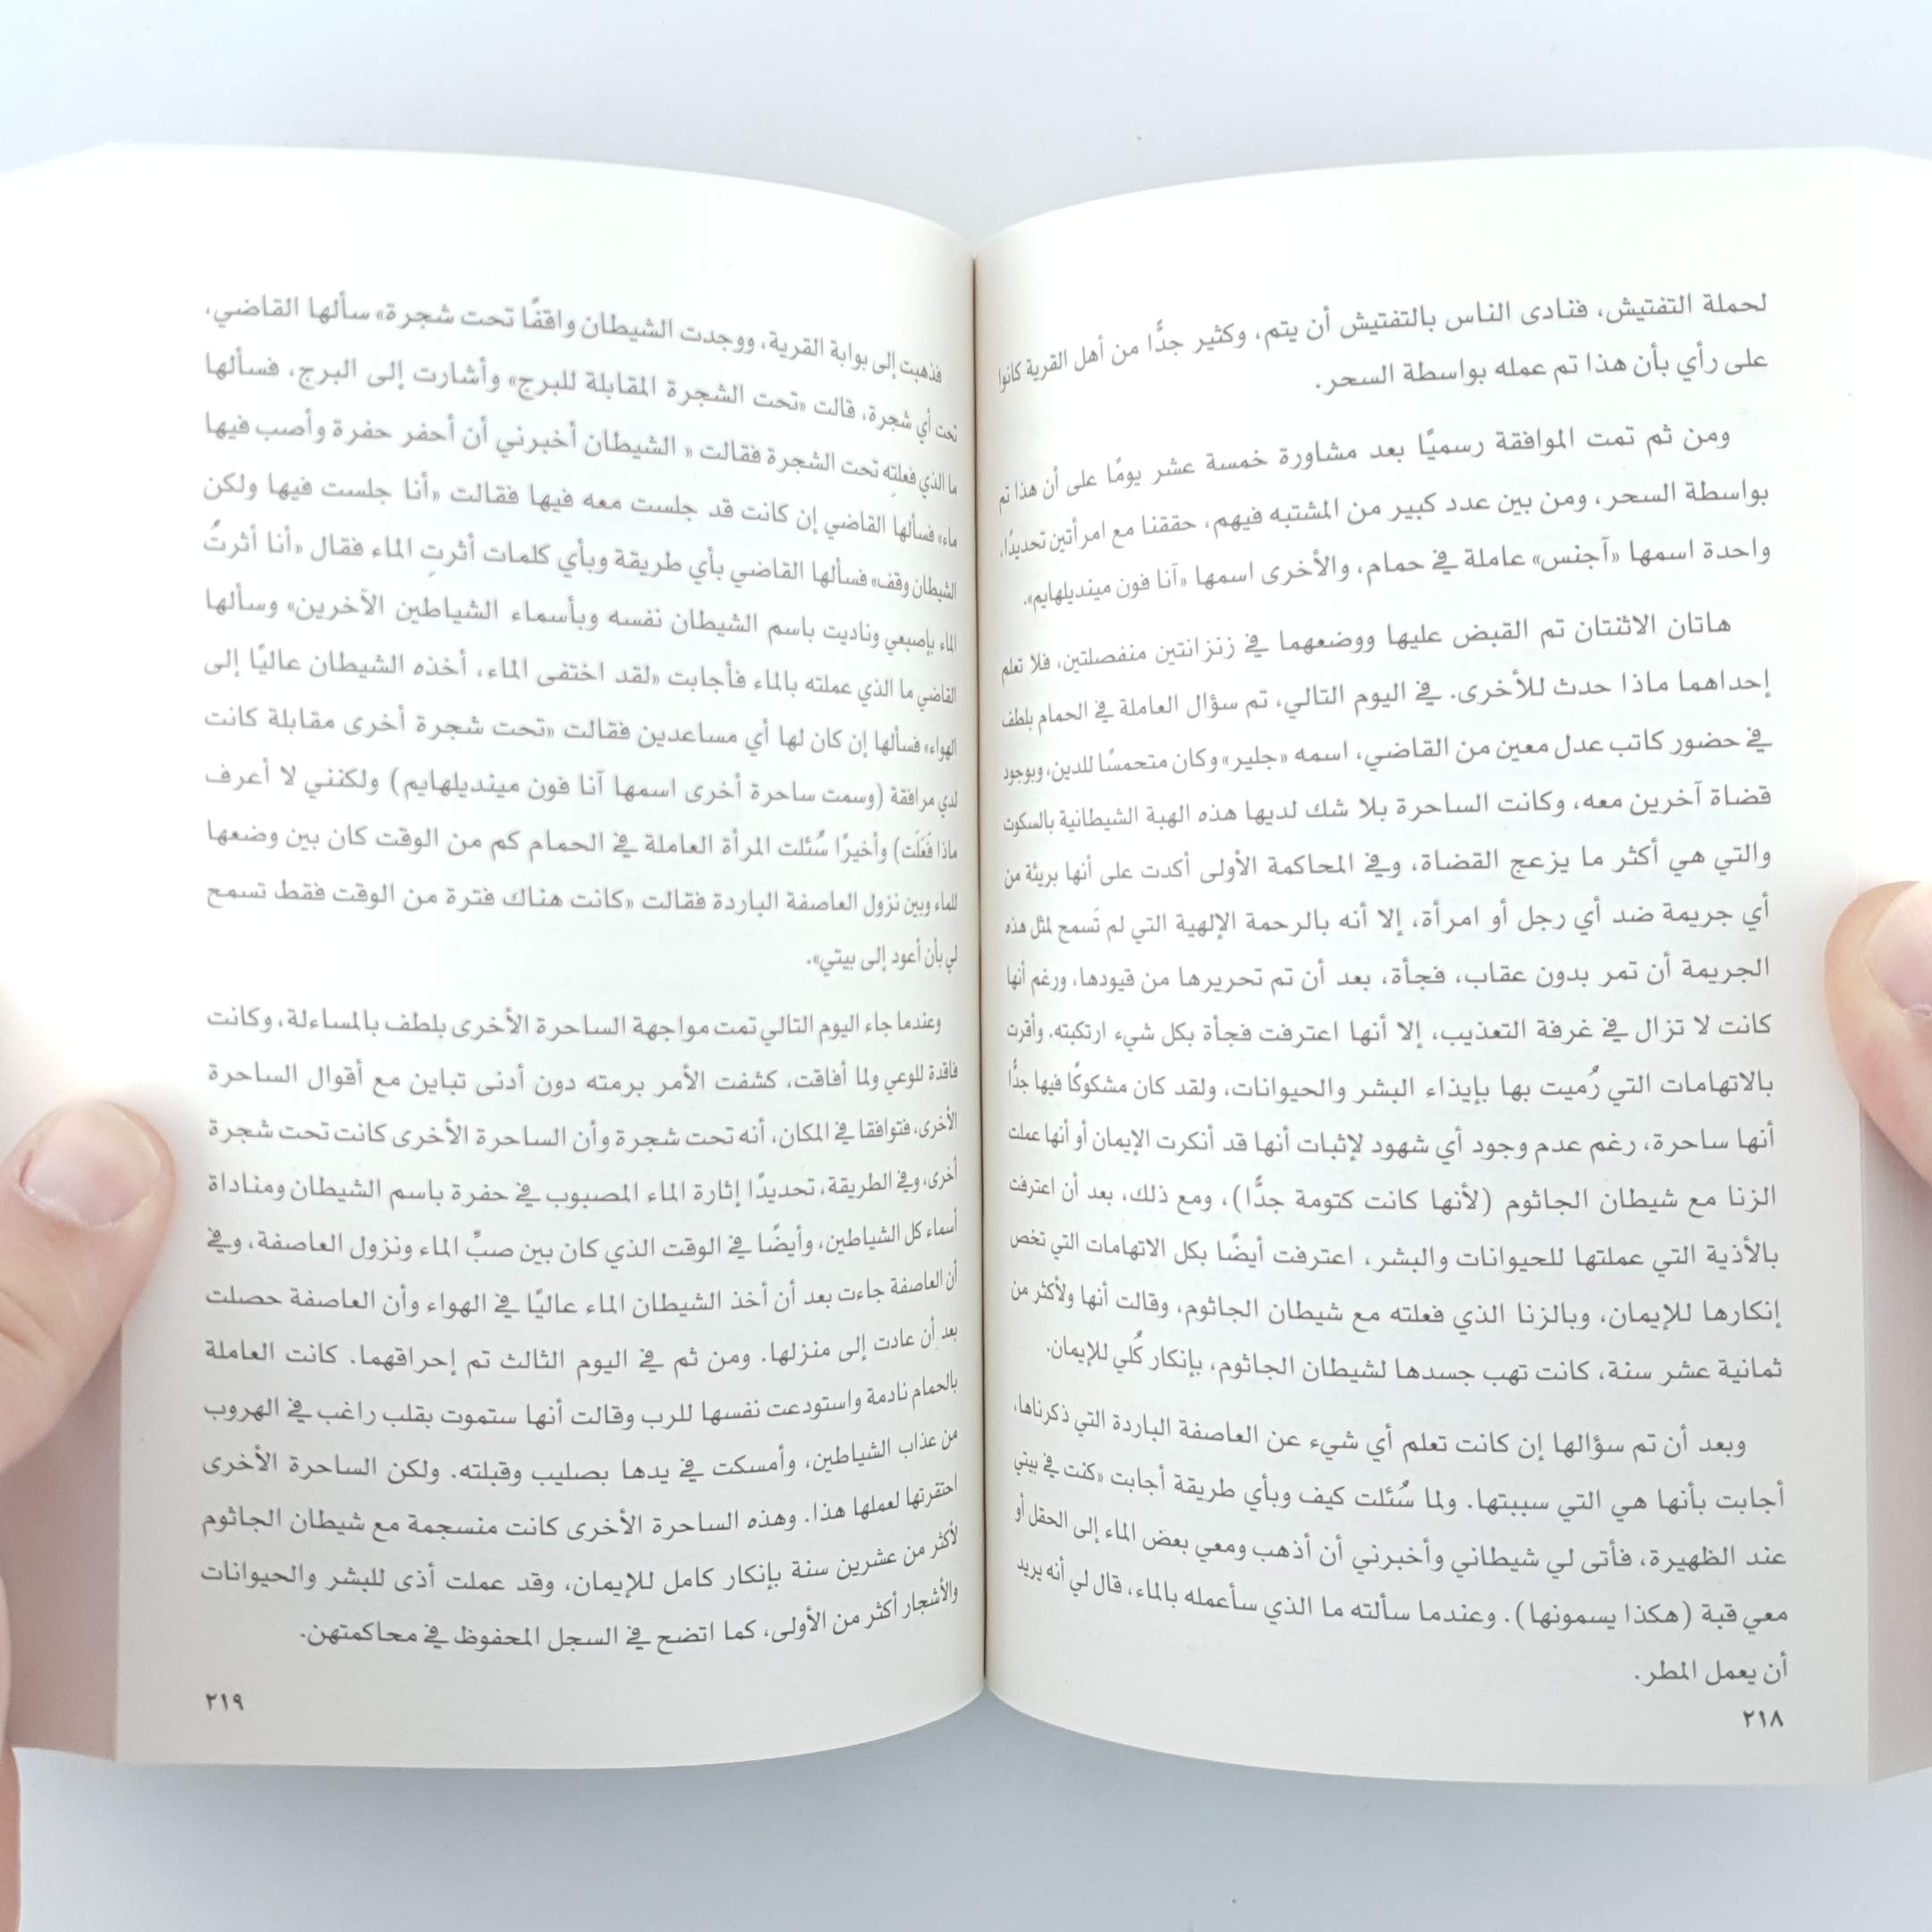 لحملة التفتيش، فنادى الناس بالتفتيش أن يتم، وكثير جدًّا من أهل القرية كانوا
على رأي بأن هذا تم عمله بواسطة السحر.
ومن ثم تمت الموافقة رسميًا بعد مشاورة خمسة عشر يومًا على أن هذا تم
بواسطة السحر، ومن بين عدد كبير من المشتبه فيهم، حققنا مع امرأتين تحديدًا،
واحدة اسمها «آجنس» عاملة في حمام، والأخرى اسمها «آنا فون مينديلهايم».
هاتان الاثنتان تم القبض عليها ووضعهما في زنزانتين منفصلتين، فلا تعلم
إحداهما ماذا حدث للأخرى. في اليوم التالي، تم سؤال العاملة في الحمام بلطف
في حضور كاتب عدل معين من القاضي، اسمه «جلير» وكان متحمسًا للدين، وبوجود
قضاة آخرين معه، وكانت الساحرة بلا شك لديها هذه الهبة الشيطانية بالسكوت
والتي هي أكثر ما يزعج القضاة، وفي المحاكمة الأولى أكدت على أنها بريئة من
أي جريمة ضد أي رجل أو امرأة، إلا أنه بالرحمة الإلهية التي لم تَسمح لمثل هذه
الجريمة أن تمر بدون عقاب، فجأة، بعد أن تم تحريرها من قيودها، ورغم أنها
كانت لا تزال في غرفة التعذيب، إلا أنها اعترفت فجأة بكل شيء ارتكبته. وأقرت
بالاتهامات التي رُميت بها بإيذاء البشر والحيوانات، ولقد كان مشكوكًا فيها جدًّا
أنها ساحرة، رغم عدم وجود أي شهود لإثبات أنها قد أنكرت الإيمان أو أنها عملت
الزنا مع شيطان الجاثوم (لأنها كانت كتومة جدًّا)، ومع ذلك، بعد أن اعترفت
بالأذية التي عملتها للحيوانات والبشر، اعترفت أيضًا بكل الاتهامات التي تخص
إنكارها للإيمان، وبالزنا الذي فعلته مع شيطان الجاثوم، وقالت أنها ولأكثر من
ثمانية عشر سنة، كانت تهب جسدها لشيطان الجاثوم، بإنكار كُلي للإيمان.
وبعد أن تم سؤالها إن كانت تعلم أي شيء عن العاصفة الباردة التي ذكرناها،
أجابت بأنها هي التي سببتها. ولما سُئلت كيف وبأي طريقة أجابت «كنت في بيتي
عند الظهيرة، فأتى لي شيطاني وأخبرني أن أذهب ومعي بعض الماء إلى الحقل أو
معي قبة (هكذا يسمونها). وعندما سألته ما الذي سأعمله بالماء، قال لي أنه يريد
أن يعمل المطر.
٢١٨
فذهبت إلى بوابة القرية، ووجدت الشيطان واقفًا تحت شجرة» سألها القاضي،
تحت أي شجرة، قالت «تحت الشجرة المقابلة للبرج» وأشارت إلى البرج، فسألها
ما الذي فعلتِه تحت الشجرة فقالت « الشيطان أخبرني أن أحفر حفرة وأصب فيها
ماء» فسألها القاضي إن كانت قد جلست معه فيها فقالت «أنا جلست فيها ولكن
الشيطان وقف» فسألها القاضي بأي طريقة وبأي كلمات أثرتِ الماء فقال «أنا أثرتُ
الماء بإصبعي وناديت باسم الشيطان نفسه وبأسماء الشياطين الآخرين» وسألها
القاضي ما الذي عملته بالماء فأجابت «لقد اختفى الماء، أخذه الشيطان عاليًا إلى
الهواء» فسألها إن كان لها أي مساعدين فقالت «تحت شجرة أخرى مقابلة كانت
لدي مرافقة (وسمت ساحرة أخرى اسمها آنا فون مينديلهايم) ولكنني لا أعرف
ماذا فَعَلَت) وأخيرًا سُئلت المرأة العاملة في الحمام كم من الوقت كان بين وضعها
للماء وبين نزول العاصفة الباردة فقالت «كانت هناك فترة من الوقت فقط تسمح
لي بأن أعود إلى بيتي».
وعندما جاء اليوم التالي تمت مواجهة الساحرة الأخرى بلطف بالمساءلة، وكانت
فاقدة للوعي ولما أفاقت، كشفت الأمر برمته دون أدنى تباين مع أقوال الساحرة
الأخرى، فتوافقا في المكان، أنه تحت شجرة وأن الساحرة الأخرى كانت تحت شجرة
أخرى، وفي الطريقة، تحديدًا إثارة الماء المصبوب في حفرة باسم الشيطان ومناداة
أسماء كل الشياطين، وأيضًا في الوقت الذي كان بين صبِّ الماء ونزول العاصفة، وفي
أن العاصفة جاءت بعد أن أخذ الشيطان الماء عاليًا في الهواء وأن العاصفة حصلت
بعد أن عادت إلى منزلها. ومن ثم في اليوم الثالث تم إحراقهما. كانت العاملة
بالحمام نادمة واستودعت نفسها للرب وقالت أنها ستموت بقلب راغب في الهروب
من عذاب الشياطين، وأمسكت في يدها بصليب وقبلته. ولكن الساحرة الأخرى
احتقرتها لعملها هذا. وهذه الساحرة الأخرى كانت منسجمة مع شيطان الجاثوم
لأكثر من عشرين سنة بإنكار كامل للإيمان، وقد عملت أذى للبشر والحيوانات
والأشجار أكثر من الأولى، كما اتضح في السجل المحفوظ في محاكمتهن.
٢١٩